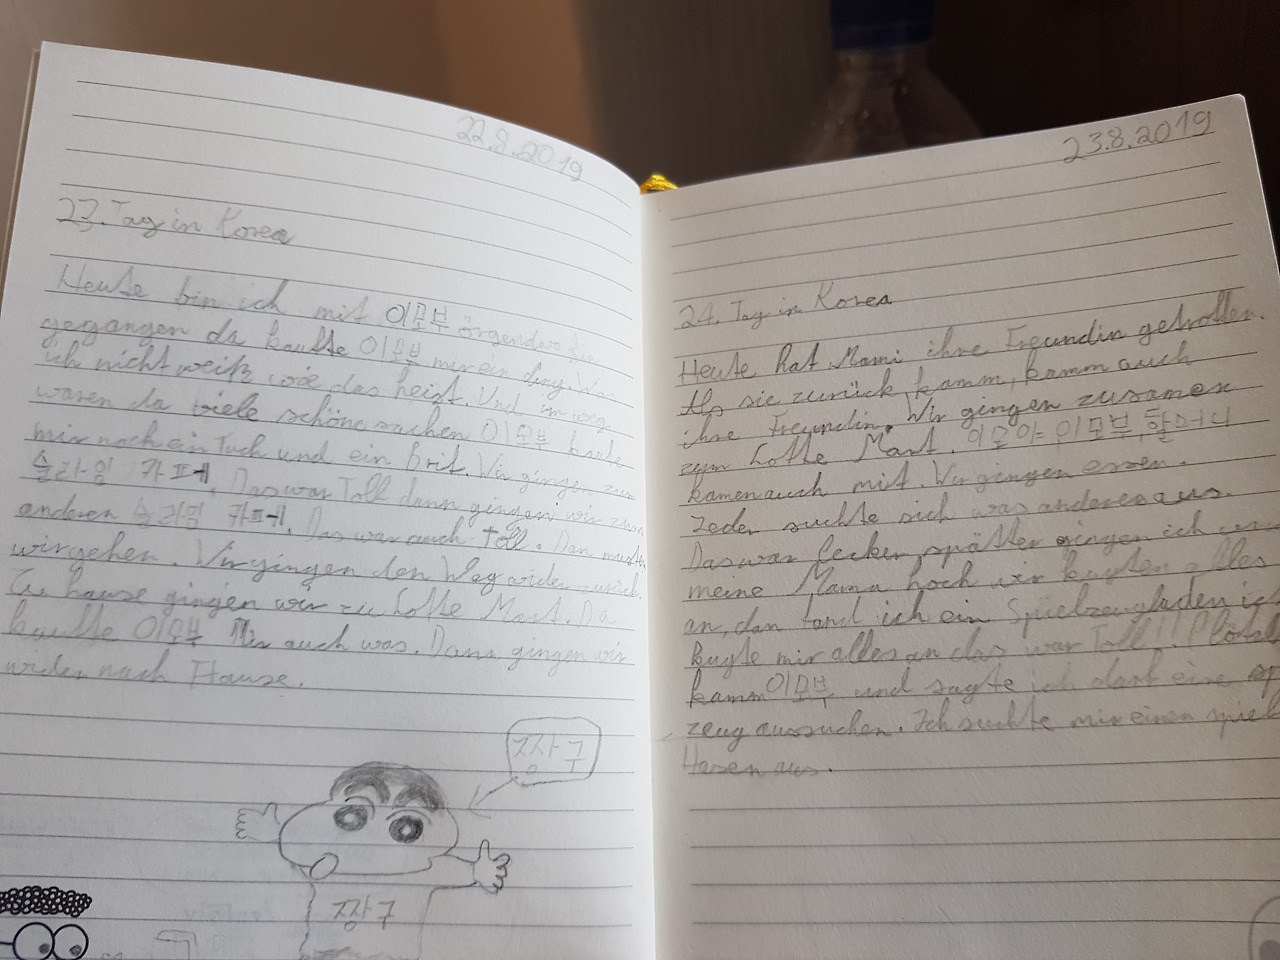 22.8.2019
23. Tag in Korea
Heute bin ich mit 이모부 örgendwo hin
gegangen da kaufte 이모부 mir ein ding. Was
ich nicht weiß wie das heist. Und im weg
waren da viele schöne sachen 이모부 kaufte
mir noch ein Tuch und ein Brit. Wir gingen zum
슬라임 카페. Das war Toll dann gingen wir zum
anderen 슬라임 카페. Das war auch toll. Dan musten
wir gehen. Wir gingen den Weg wider zurück.
Zu hause gingen wir zu Lotte Mart. Da
kaufte 이모부 Mir auch was. Dann gingen wir
wider nach Hause.
짱구
짱구
23.8.2019
24. Tag in Korea
Heute hat Mami ihre Freundin getroffen.
Als sie zurück kamm, kamm auch
ihre Freundin. Wir gingen zusamen
zum Lotte Mart. 이모 이모부, 할머니
kamen auch mit. Wir gingen essen.
Jeder suchte sich was anderes aus.
Das war lecker, spätter gingen ich und
meine Mama hoch wir kugten alles
an, dan fand ich ein Spielzeugladen ich
kugte mir alles an das war Toll!!! Plötzl
kamm 이모부 und sagte ich darf eine sp
zeug aussuchen. Ich suchte mir einen spiel
Hasen aus.